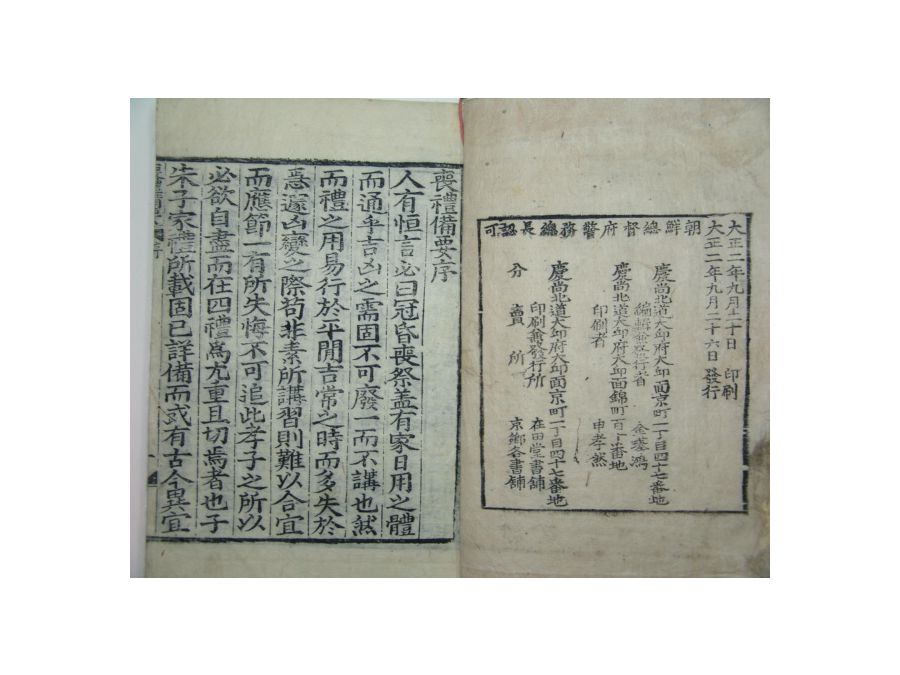 大正二年九月二十日 印刷
大正二年九月二十六日 發行
朝鮮總督府警務總長認可
慶尚北道大邱府大邱面京町一丁目四十七番地
編輯兼發行者 金璂鴻
慶尚北道大邱府大邱面錦町百十番地
印刷者 申孝然
慶尚北道大邱府大邱面京町一丁目四十七番地
印刷兼發行所 在田堂書鋪
分賣所 京鄉各書鋪
喪禮備要序
人有恒言必曰冠昏喪祭盖有家日用之體
而通乎吉凶之需固不可廢一而不講也然
而禮之用易行於平閒吉常之時而多失於
忩遽凶變之際苟非素所講習則難以合宜
而應節一有所失悔不可追此孝子之所以
必欲自盡而在四禮爲尤重且切焉者也子
朱子家禮所載固已詳備而或有古今異宜